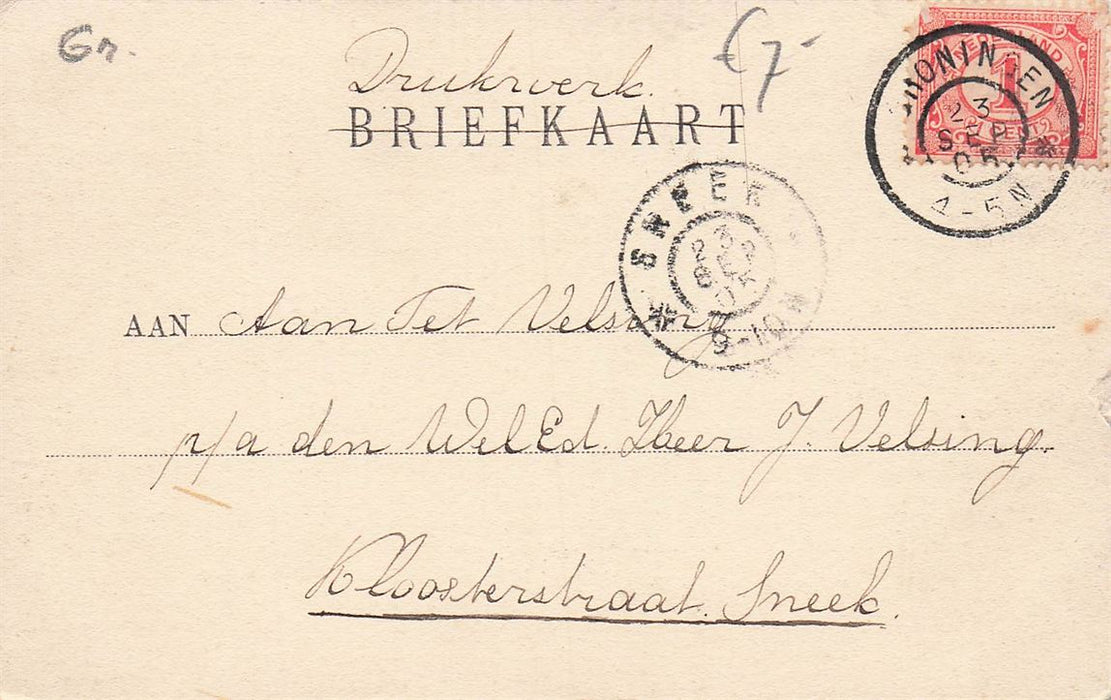 Gr.
€7-
Drukwerk.
BRIEFKAART
NEDERLAND
1
CENT
GRONINGEN
23
SEP
05
4-5N
SNEEK
23
SEP
05
9-10N
AAN Aan Tet Velsing
p/a den WelEd. Heer J. Velsing.
Kloosterstraat. Sneek.